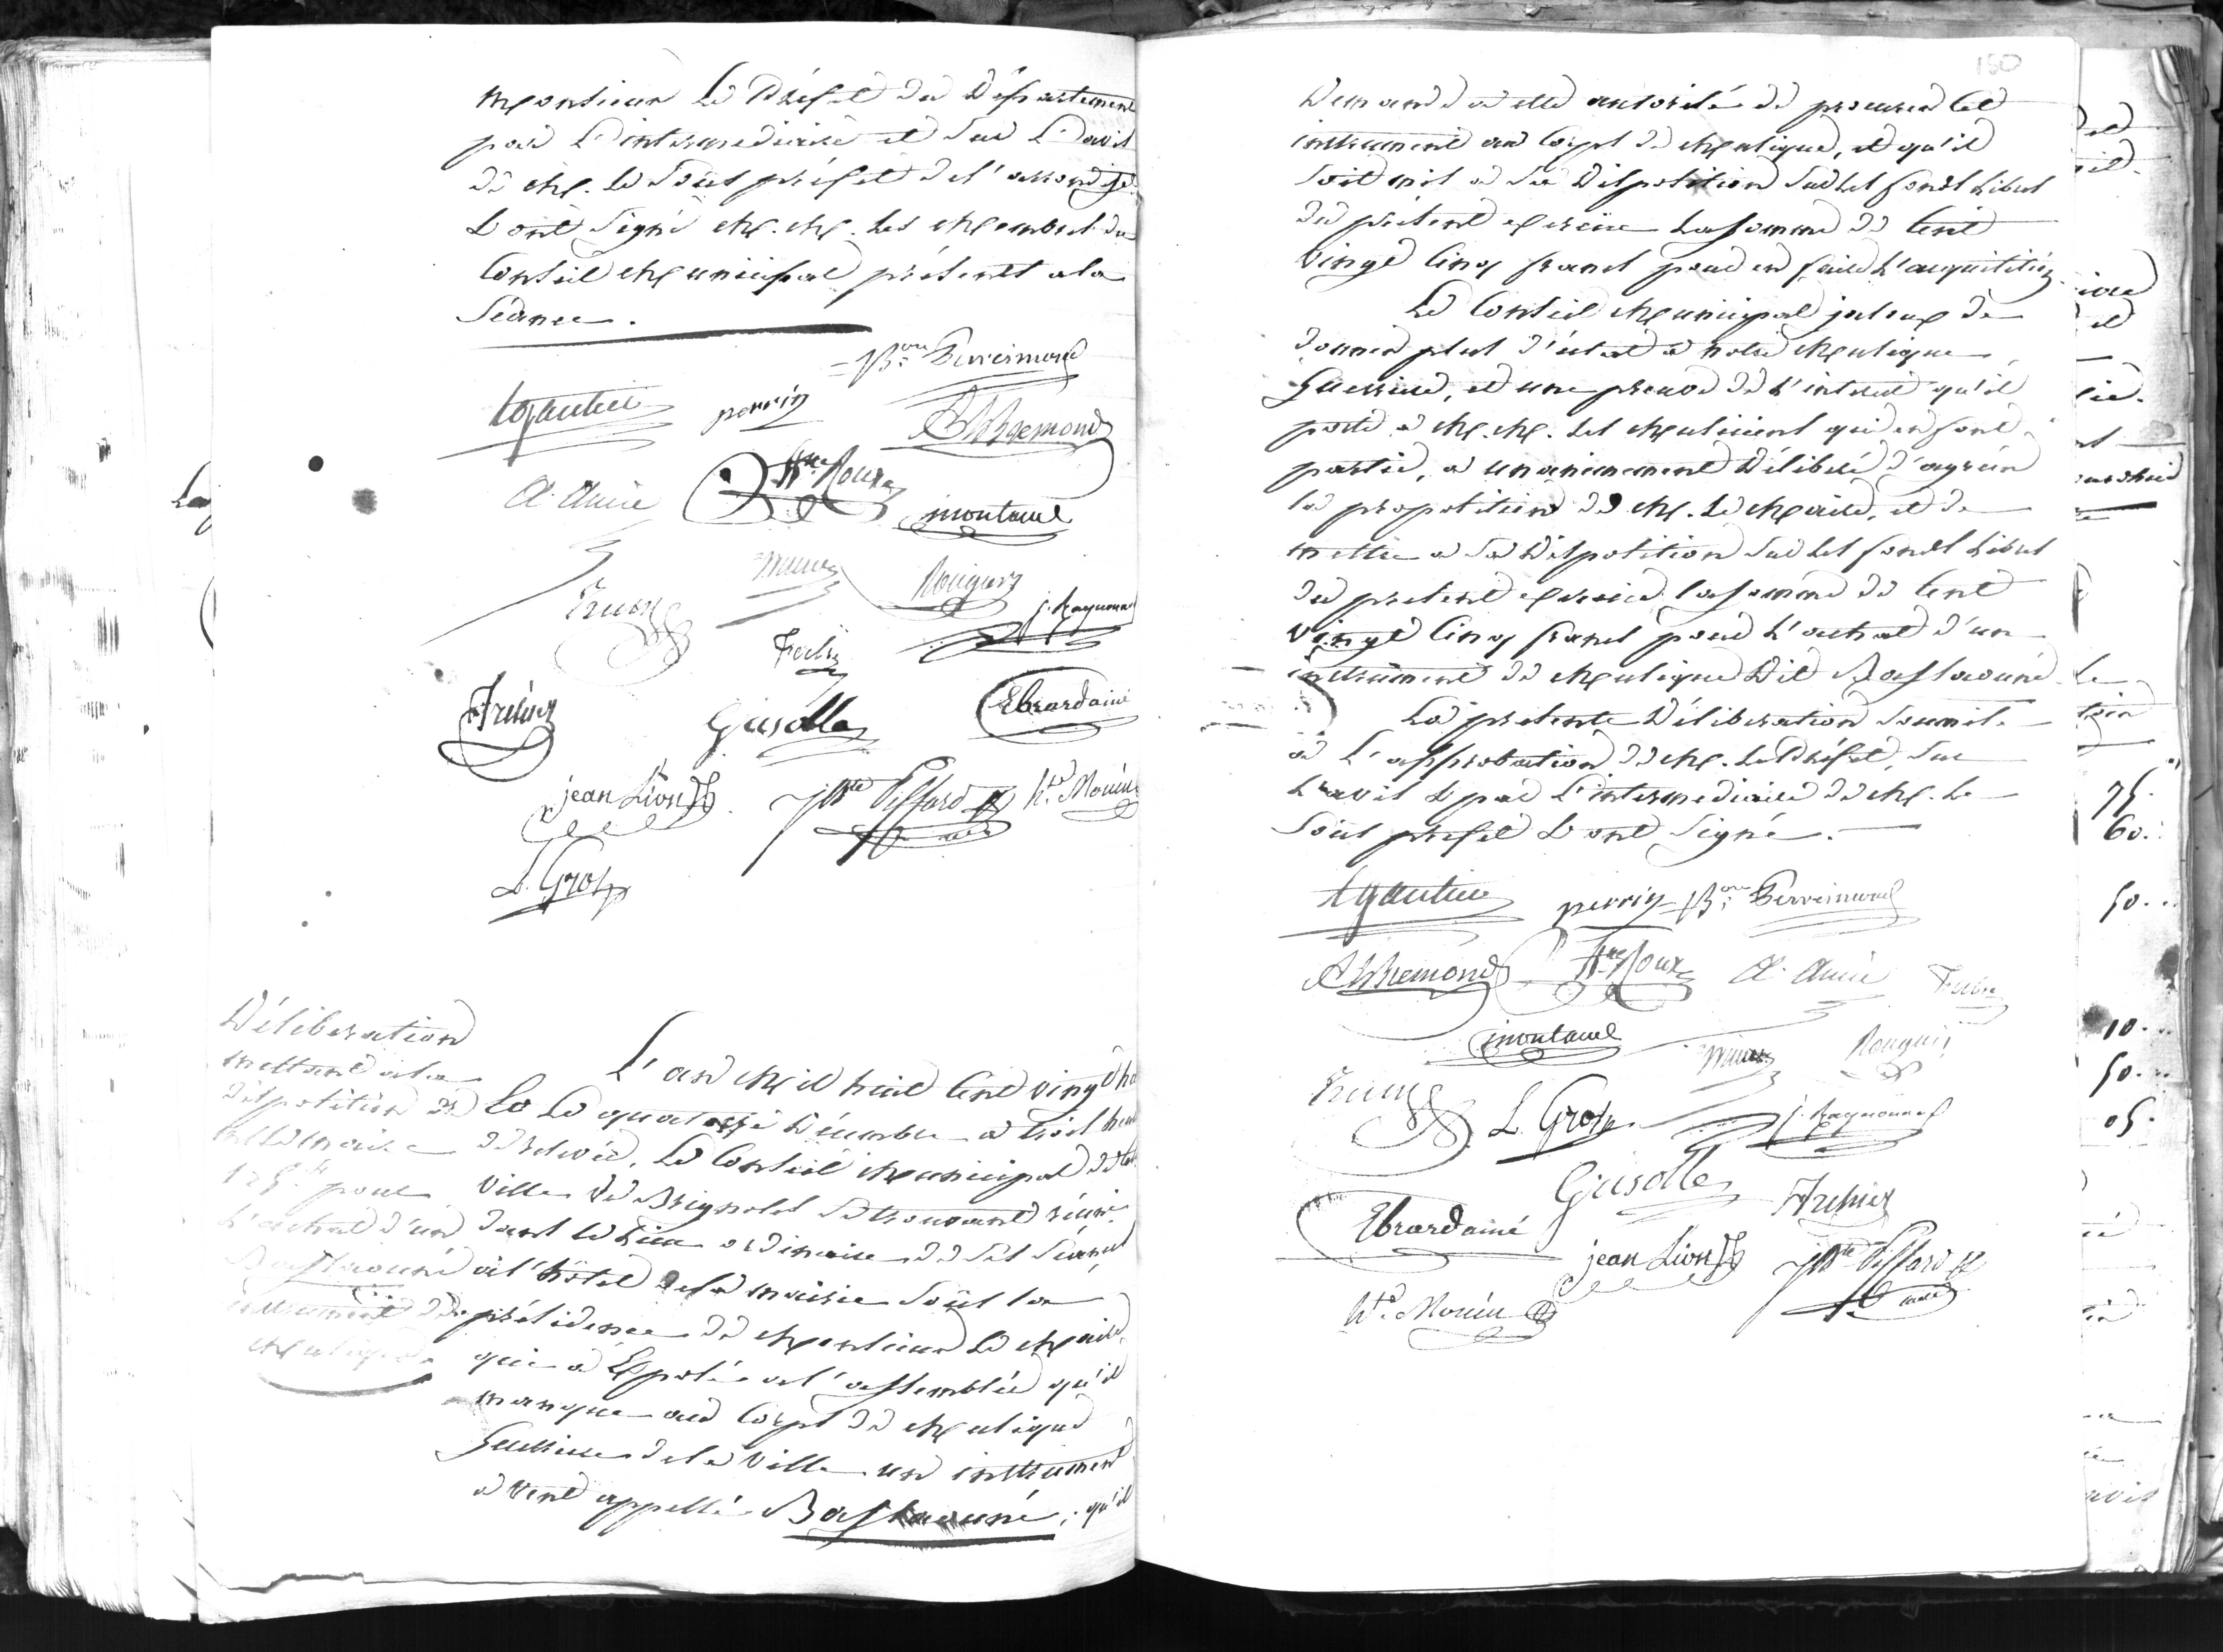 Monsieur Le Préfet du Département
par L'intermediaire et sur L'avis
de M. Le Sous préfet de l'arrondis.
L'ont Signé M. M. Les Membres du
Conseil Municipal présents a la
Séance.
Perreimond
perrin
Roux
A. Amic
montaud
j. Raymond
Grisolle
Ebrard ainé
jean Lion
L. Gros
Déliberation
mettant a la
disposition de
M. le maire
125 f. pour
L'achat d'un
instrument de
Musique
L'an Mil huit Cent vingt
Le quatorze Décembre a trois heures
de relevée, Le Conseil Municipal de la
Ville de Brignoles Se trouvant réuni
dans le Lieu ordinaire de Ses Séances
à l'hôtel de la mairie Sous la
présidence de Monsieur Le Maire,
qui a Exposé a l'assemblée qu'il
manque au Corps de Musique
Guerriere de la Ville un instrument
a vent appellé ; qu'il
150
Demande a etre autorisé de procurer Cet
instrument au Corps de Musique, et qu'il
Soit mis a Sa Disposition Sur les fonds Libres
du présent exercice La Somme de Cent
Vingt Cinq francs pour en faire L'acquisition
Le Conseil Municipal jaloux de
donner plus d'éclat a notre Musique
Guerriere, et une preuve de L'intérêt qu'il
porte a M. M. Les Musiciens qui en font
partie, a unanimement Délibéré d'agréer
la proposition de M. Le Maire, et de
mettre a Sa Disposition Sur les fonds Libres
du present exercice la Somme de Cent
Vingt Cinq francs pour L'achat d'un
instrument de Musique Dit
La présente Déliberation Soumise
a L'approbation de M. Le Préfet, Sur
L'avis & par L'intermediaire de M. Le
Sous préfet L'ont Signé.
perrin Perreimond
Roux A. Amic
montaud
L. Gros j. Raymond
Grisolle
Ebrard ainé
jean Lion
75.
60.
50.
10.
50.
05.